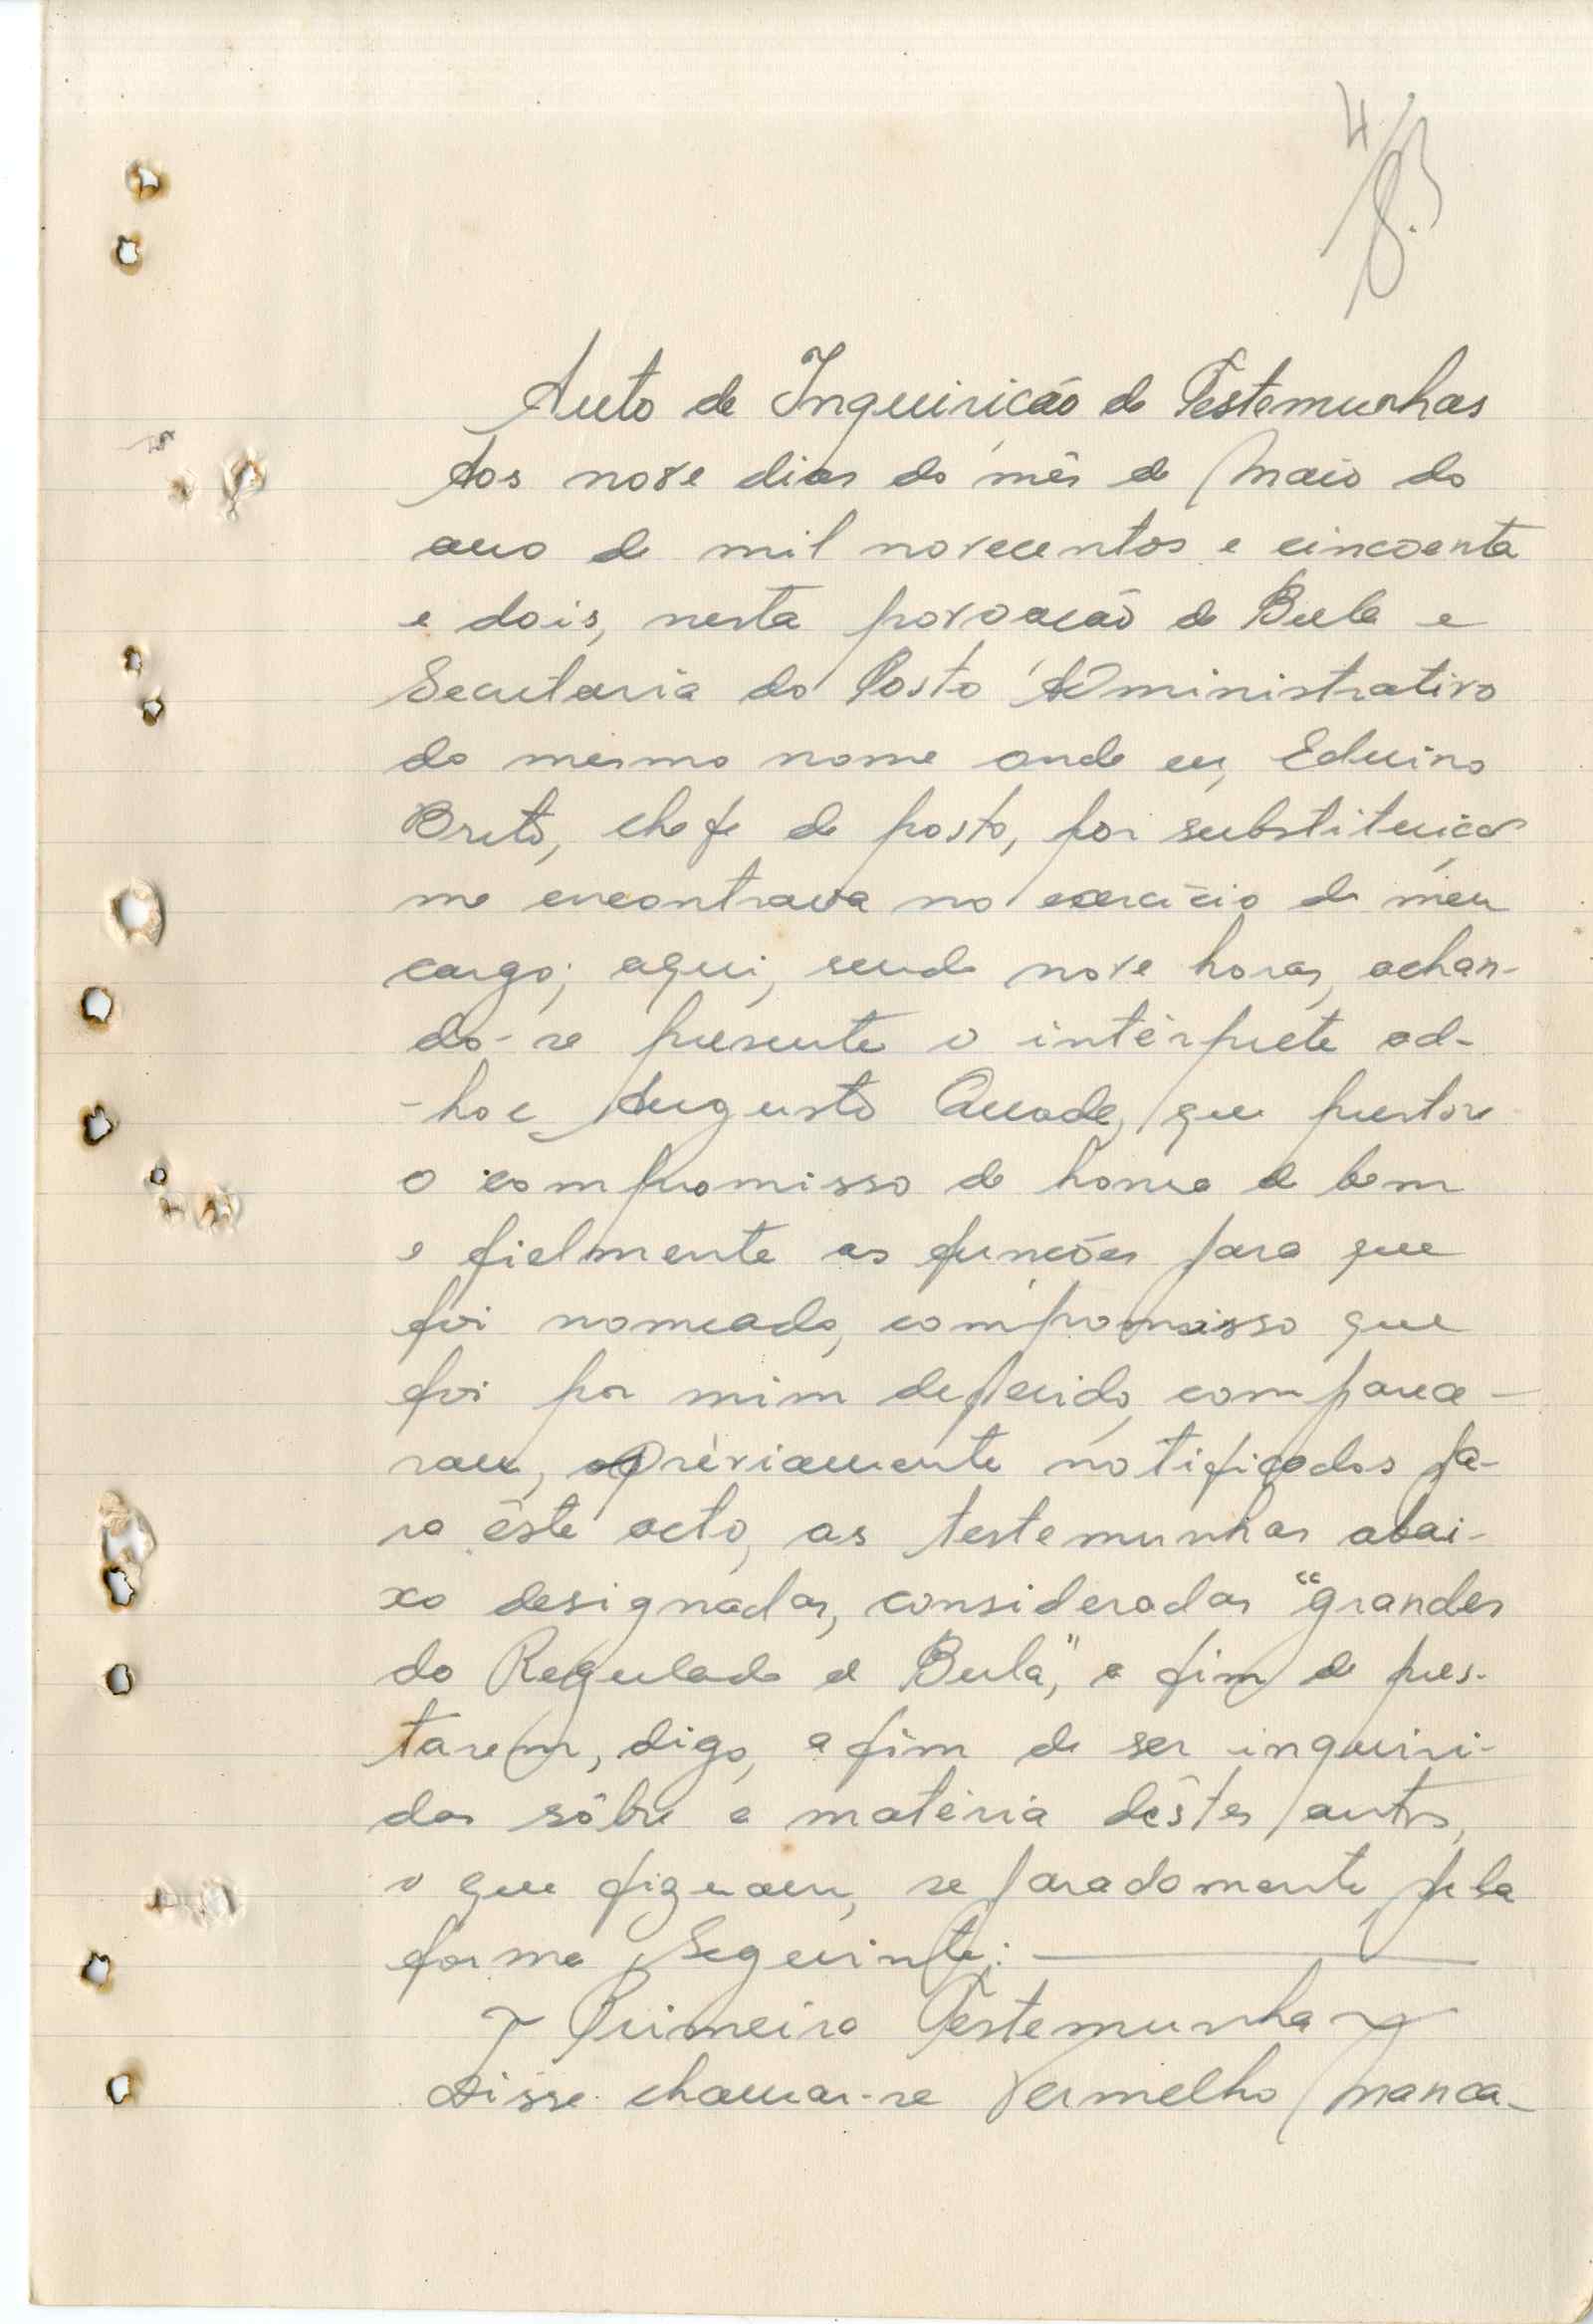 4
Auto de Inquirição de Testemunhas
Aos nove dias do mês de Maio do
ano de mil novecentos e cincoenta
e dois, nesta povoação de Bula e
Secretaria do Posto Administrativo
do mesmo nome onde eu, Eduino
Brito, chefe de posto, por substituição
me encontrava no exercício de meu
cargo; aqui, sendo nove horas, achan-
do-se presente o intérprete ad-
-hoc Augusto que prestou
o compromisso de honra de bem
e fielmente as funções para que
foi nomeado, compromisso que
foi por mim deferido, compare-
ram, prèviamente notificados pa-
ra êste acto, as testemunhas abai-
xo designadas, consideradas "grandes
do Regulado de Bula", a fim de pres-
tarem, digo, a fim de ser inquiri-
das sôbre a matéria dêstes autos,
o que fizeram, separadamente, pela
forma seguinte:
Primeira Testemunha
Disse chamar-se Vermelho Manca-